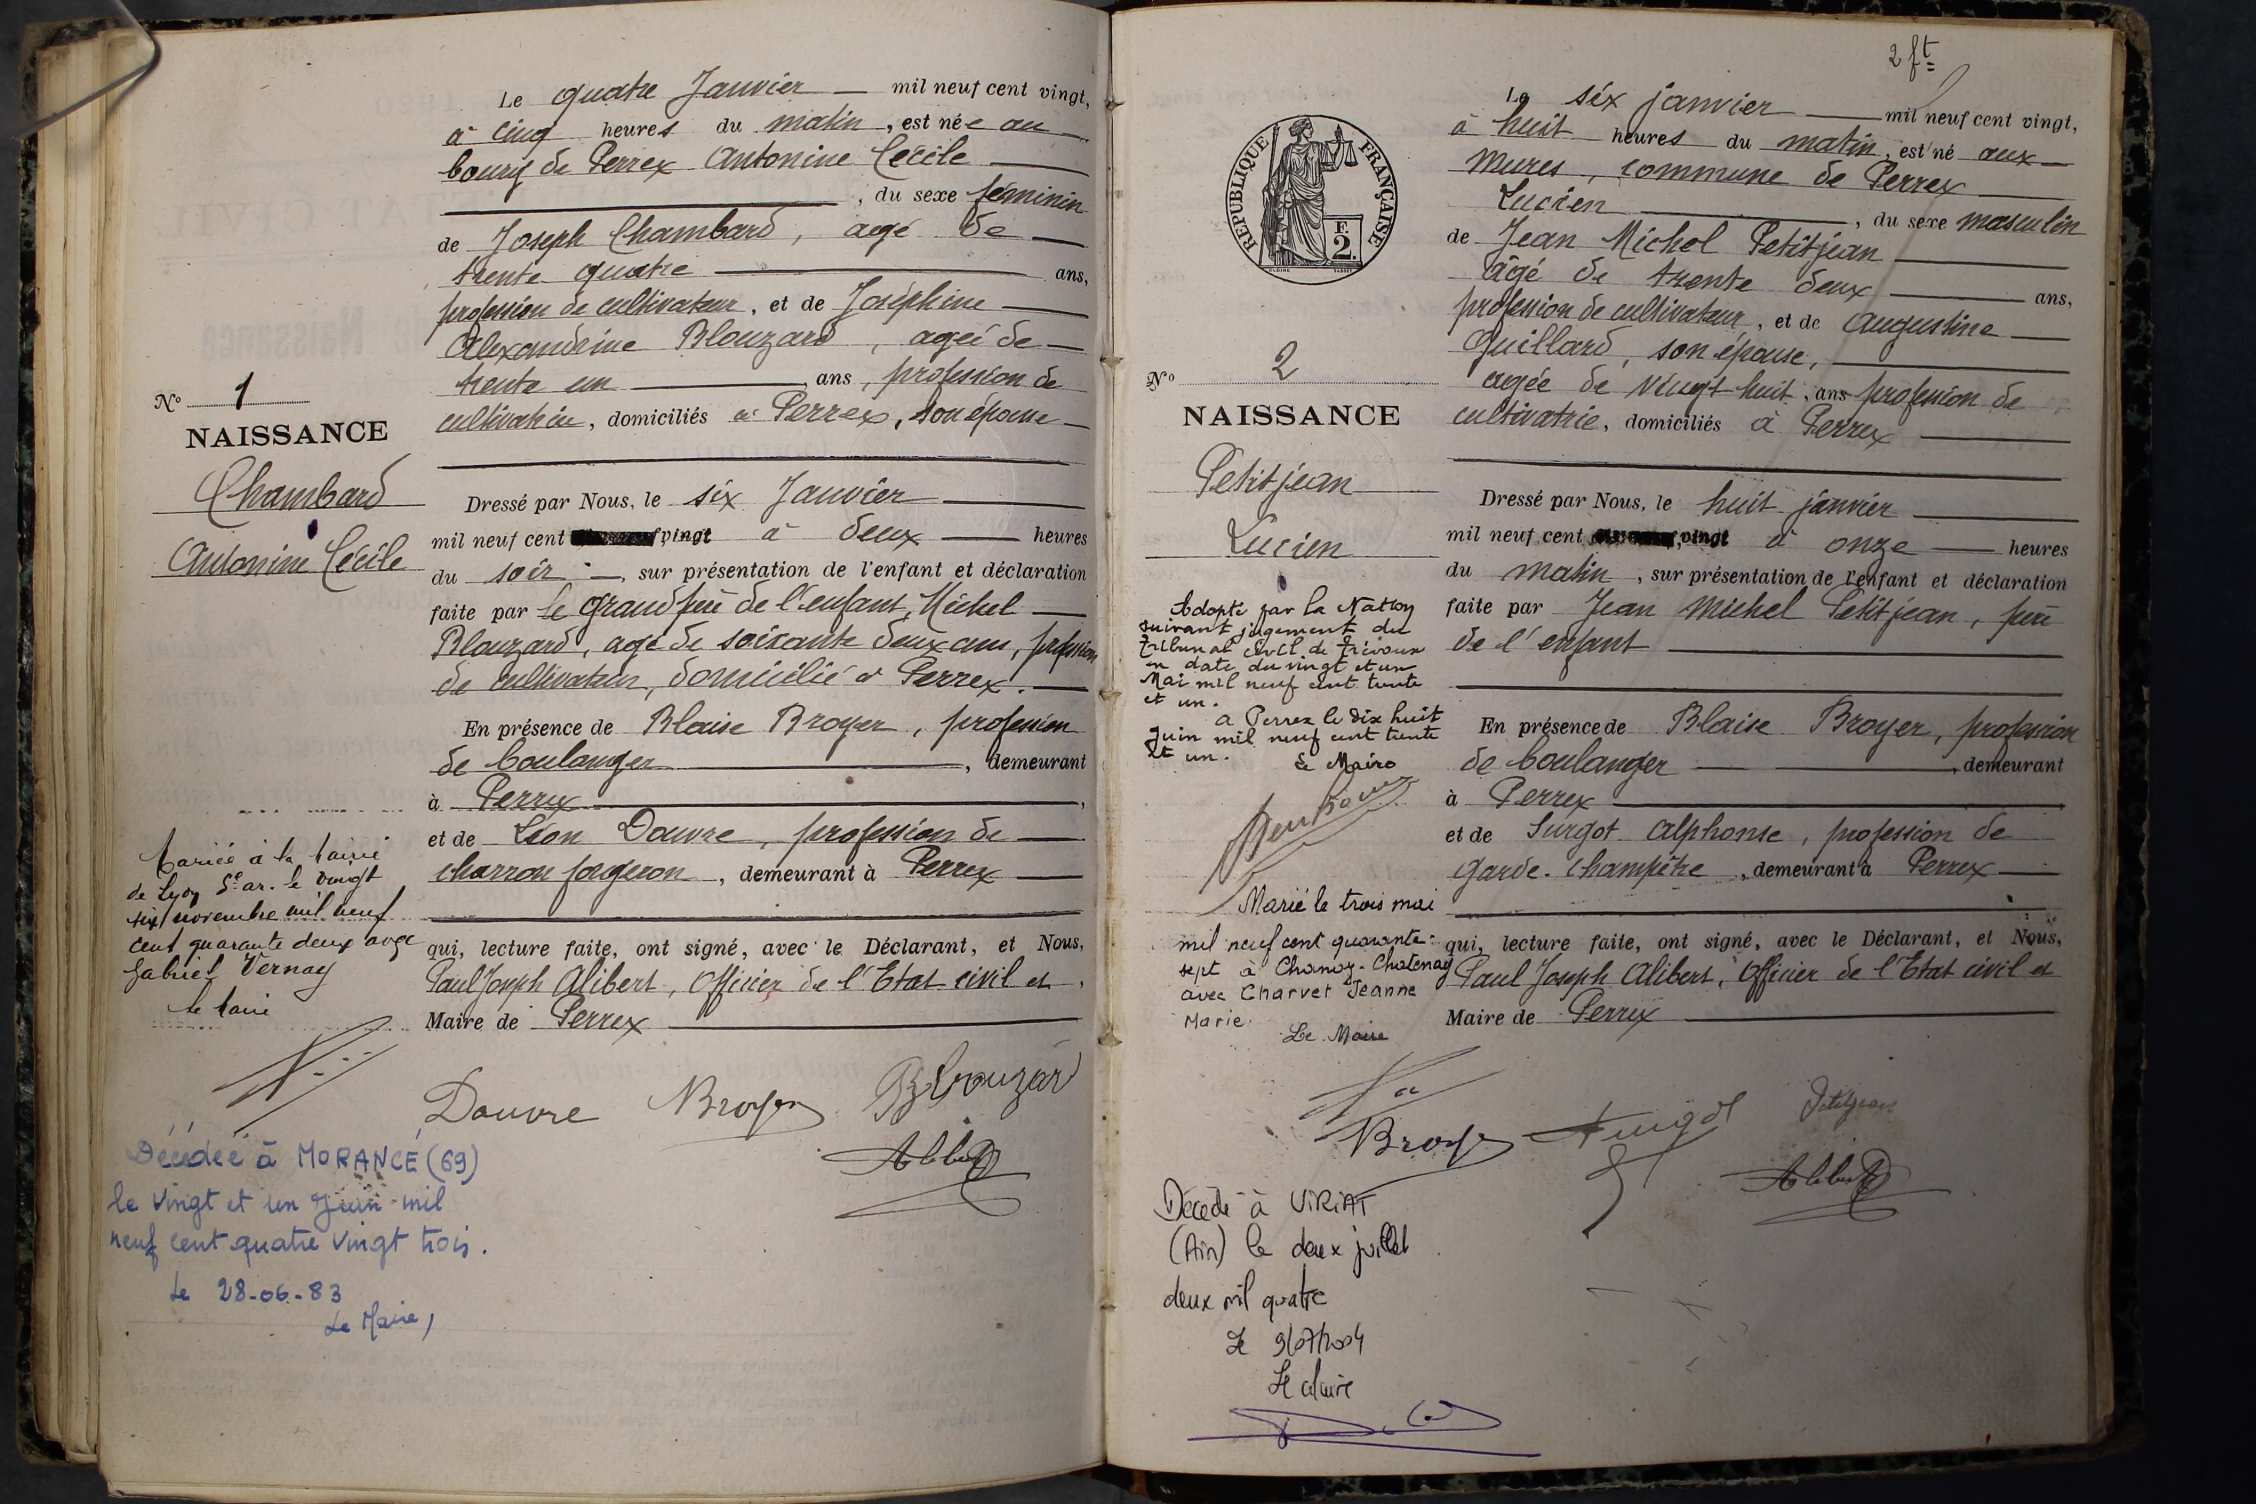 Le quatre Janvier — mil neuf cent vingt,
à cinq heures du matin, est née au
bourg de Perrex Antonine Cécile
, du sexe féminin
de Joseph Chambard, agé de
trente quatre ans,
profession de cultivateur, et de Joséphine
Alexandrine Blouzard, ageé de
trente un ans, profession de
cultivatrice, domiciliés à Perrex, son épouse
No 1
NAISSANCE
Chambard
Antonine Cécile
Dressé par Nous, le six Janvier
mil neuf cent vingt à deux heures
du soir, sur présentation de l'enfant et déclaration
faite par le Grand père de l'enfant, Michel
Blouzard, agé de soixante deux ans, profession
de cultivateur, domicilié à Perrex.
En présence de Blaise Broyer, profession
de boulanger, demeurant
à Perrex,
et de Léon Douvre, profession de
charron forgeron, demeurant à Perrex
qui, lecture faite, ont signé, avec le Déclarant, et Nous,
Paul Joseph Alibert, Officier de l'Etat civil et
Maire de Perrex
Mariée à la Mairie
de Lyon 5e ar. le vingt
six novembre mil neuf
cent quarante deux avec
Gabriel Vernay
Le Maire
Douvre Broyer Blouzard
Alibert
Décédée à MORANCÉ (69)
le vingt et un Juin mil
neuf cent quatre vingt trois.
Le 28-06-83
Le Maire,
2 ft
Le six janvier mil neuf cent vingt,
à huit heures du matin, est né aux
Mures, commune de Perrex
Lucien, du sexe masculin
de Jean Michel Petitjean
âgé de trente deux ans,
profession de cultivateur, et de Augustine
Guillard, son épouse,
agée de vingt-huit, ans profession de
cultivatrie, domiciliés à Perrex
RÉPUBLIQUE FRANÇAISE
F.
2.
No 2
NAISSANCE
Petitjean
Lucien
Dressé par Nous, le huit janvier
mil neuf cent vingt à onze heures
du matin, sur présentation de l'enfant et déclaration
faite par Jean Michel Petitjean, père
de l'enfant
En présence de Blaise Broyer, profession
de boulanger, demeurant
à Perrex
et de Surgot Alphonse, profession de
Garde-Champêtre, demeurant à Perrex
qui, lecture faite, ont signé, avec le Déclarant, et Nous,
Paul Joseph Alibert, Officier de l'Etat civil et
Maire de Perrex
Adopté par la Nation
suivant jugement du
Tribunal civil de Trévoux
en date du vingt et un
Mai mil neuf cent trente
et un.
A Perrex le dix huit
Juin mil neuf cent trente
et un.
Le Maire
Marié le trois mai
mil neuf cent quarante-
sept à Chanoz-Chatenay
avec Charvet Jeanne
Marie.
Le Maire
Broyer Surgot Petitjean
Alibert
Décédé à VIRIAT
(Ain) le deux juillet
deux mil quatre
Le 9/07/2004
Le Maire